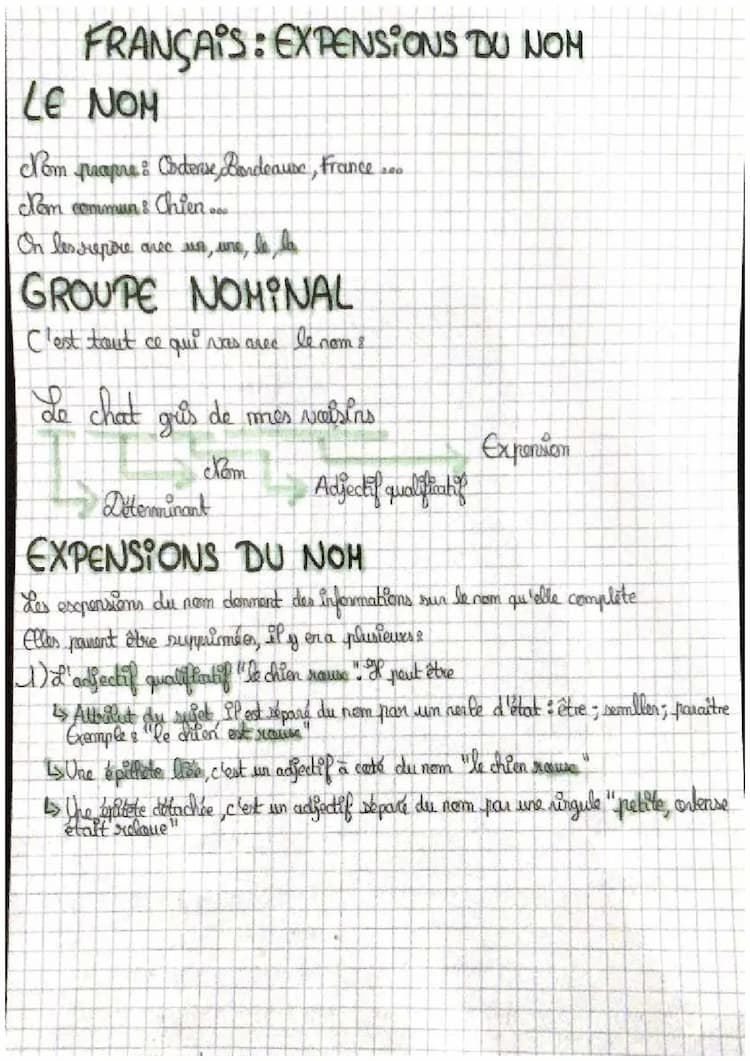 FRANÇAIS : EXPENSIONS DU NOM
LE NOM
Nom propre : Bordeaux, France ...
Nom commun : Chien ...
On les repère avec un, une, le, la
GROUPE NOMINAL
C'est tout ce qui vas avec le nom :
Le chat gris de mes voisins
Expension
Nom
Adjectif qualificatif
Déterminant
EXPENSIONS DU NOM
Les expensions du nom donnent des informations sur le nom qu'elle complète
Elles peuvent être supprimées, il y en a plusieurs :
1) L'adjectif qualificatif "le chien rouxe". Il peut être
↳ Attribut du sujet, il est séparé du nom par un verbe d'état : être ; sembler ; paraître
Exemple : "le est rouxe"
↳ Une épithète liée, c'est un adjectif à coté du nom "le chien rouxe"
↳ Une épitète détachée, c'est un adjectif séparé du nom par une virgule "petite,
était"